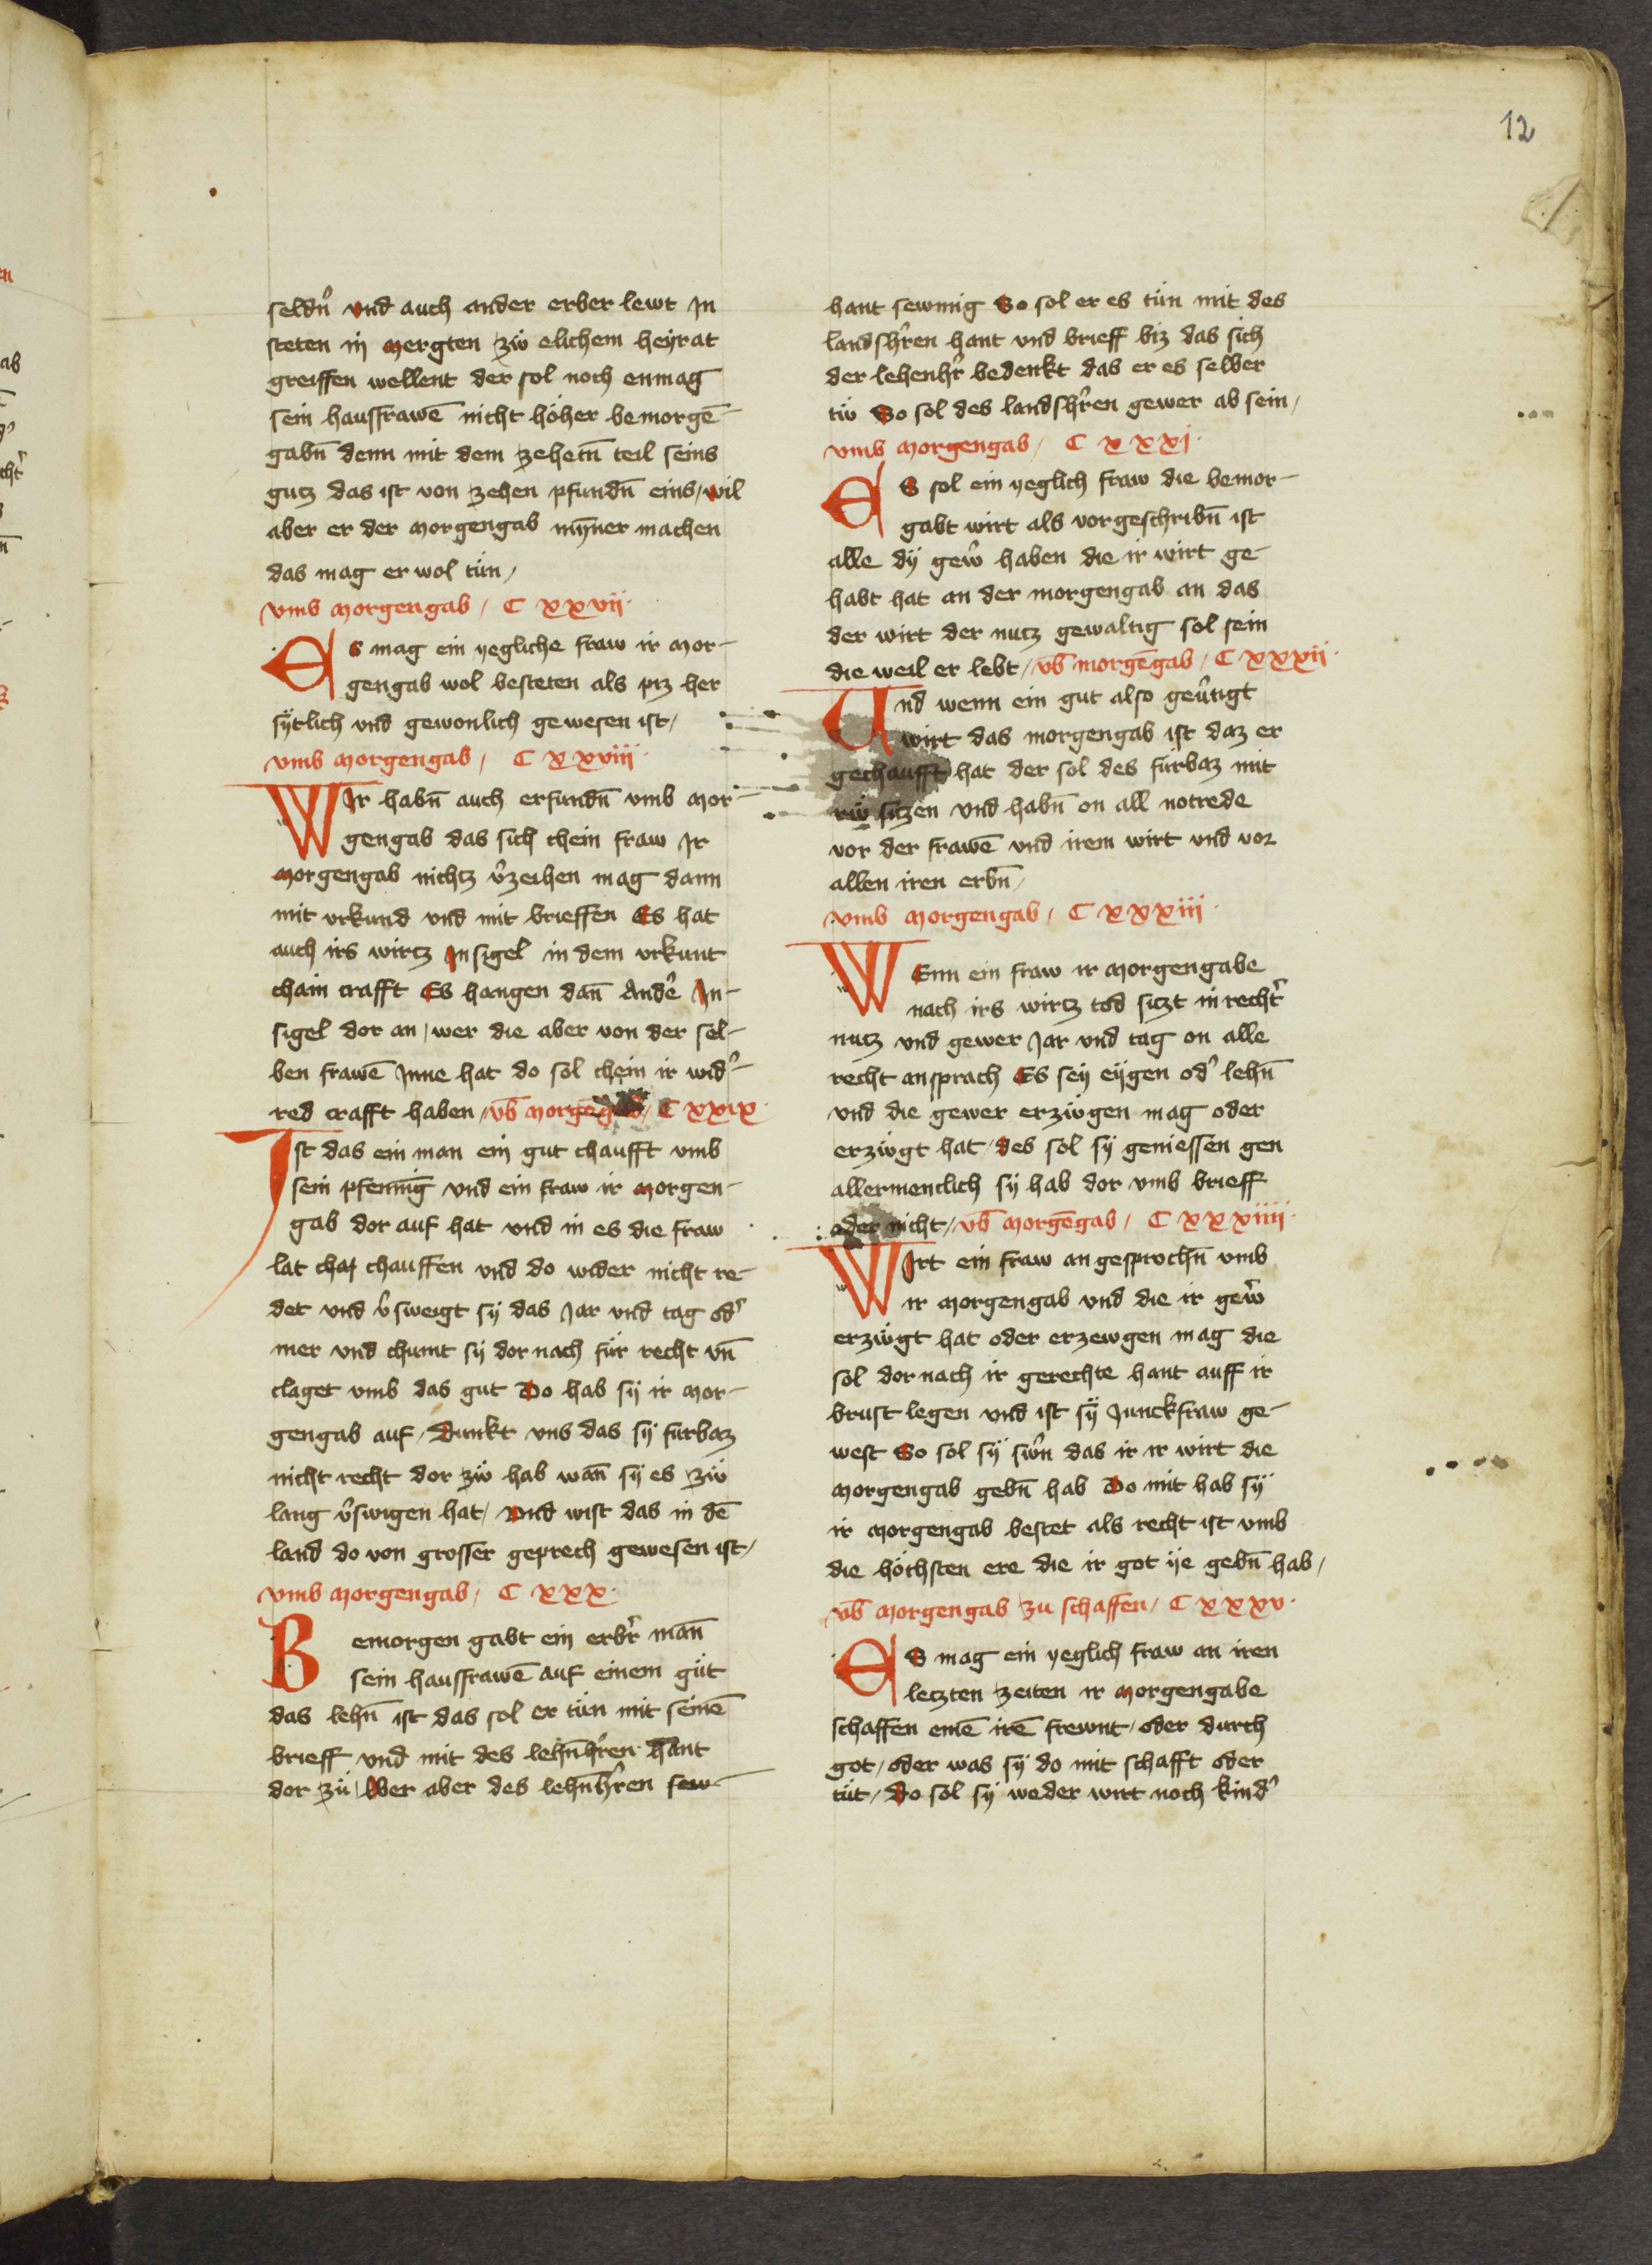 12
seldn̄ vnd auch ander erber lewt In
steten in mergten zw̋ elichem heyrat
greiffen wellent der sol noch enmag
sein hausfrawē nicht höher bemorgē-
gabn̄ denn mit dem zehetn̄ teil seins
gutz das ist von zehen pfundn̄ eins / wil
aber er der morgengab myn̄er machen
das mag er wol tün /
vmb morgengab / C xxvij ·
Es mag ein yegliche fraw ir mor-
gengab wol besteten als piz her
sytlich vnd gewonlich gewesen ist /
vmb morgengab / C xxviij ·
WIr habn̄ auch erfundn̄ vmb mor-
gengab das sich chein fraw Ir
morgengab nichtz v̉zeihen mag dann
mit vrkund vnd mit brieffen Es hat
auch irs wirtz Insigel in dem vrkunt
chain crafft Es hangen dan̄ Andē In-
sigel dor an / wer die aber von der sel-
ben frawē Inne hat do sol chein ir wid̉-
red crafft haben / vb̄ morgēgab / C xxix ·
Ist das ein man ein gut chaufft vmb
sein pfennīg vnd ein fraw ir morgen-
gab dor auf hat vnd in es die fraw
lat chauffen vnd do wider nicht re-
det vnd v̉sweigt sy das Jar vnd tag od̉
mer vnd chumt sy dor nach für recht vn̄
claget vmb das gut Do hab sy ir mor-
gengab auf / Dunkt vns das sy fürbaz
nicht recht dor zw̋ hab wan̄ sy es zw̋
lang v̉swigen hat / vnd wist das in dē
land do von grosser geprech gewesen ist /
vmb morgengab / C xxx ·
Bemorgen gabt ein erbr̉ man̄
sein hausfrawē auf einem güt
das lehn̄ ist das sol er tün mit seinē
brieff vnd mit des lehn̄hr̉ren hant
dor zü / Wer aber des lehn̄hr̉ren sew-
hant sewmig So sol er es tün mit des
landshr̉ren hant vnd brieff biz das sich
der lehenhr̉ bedenkt das er es selber
tw̋ So sol des landshr̉ren gewer ab sein /
vmb morgengab / C xxxj ·
ES sol ein yeglich fraw die bemor-
gabt wirt als vorgeschribn̄ ist
alle dy gew̉ haben die ir wirt ge-
habt hat an der morgengab an das
der wirt der nutz gewaltig sol sein
die weil er lebt / vb̄ morgēgab / C xxxij ·
Vnd wenn ein gut also geűtigt
wirt das morgengab ist daz er
gechaufft hat der sol des fürbaz mit
rw̋ sitzen vnd habn̄ on all notrede
vor der frawē vnd irem wirt vnd vor
allen iren erbn̄ /
vmb morgengab / C xxxiij ·
WEnn ein fraw ir morgengabe
nach irs wirtz tod sitzt in recht̉
nutz vnd gewer Jar vnd tag on alle
recht ansprach Es sey eygen od̉ lehn̄
vnd die gewer erzw̋gen mag oder
erzw̋gt hat / des sol sy geniessen gen
allermenclich sy hab dor vmb brieff
oder nicht / vb̄ morgēgab / C xxxiiij ·
WIrt ein fraw angesprochn̄ vmb
ir morgengab vnd die ir gew̉
erzw̋gt hat oder erzewgen mag die
sol dor nach ir gerechte hant auff ir
brust legen vnd ist sy Junckfraw ge-
west So sol sy sw̉n das ir ir wirt die
morgengab gebn̄ hab Do mit hab sy
ir morgengab bestet als recht ist vmb
die höchsten ere die ir got ye gebn̄ hab /
vb̄ morgengab zu schaffen / C xxxv ·
ES mag ein yeglich fraw an iren
letzten zeiten ir morgengabe
schaffen einē irē frewnt / oder durch
got / oder was sy do mit schafft oder
tüt / Do sol sy weder wirt noch kind̉